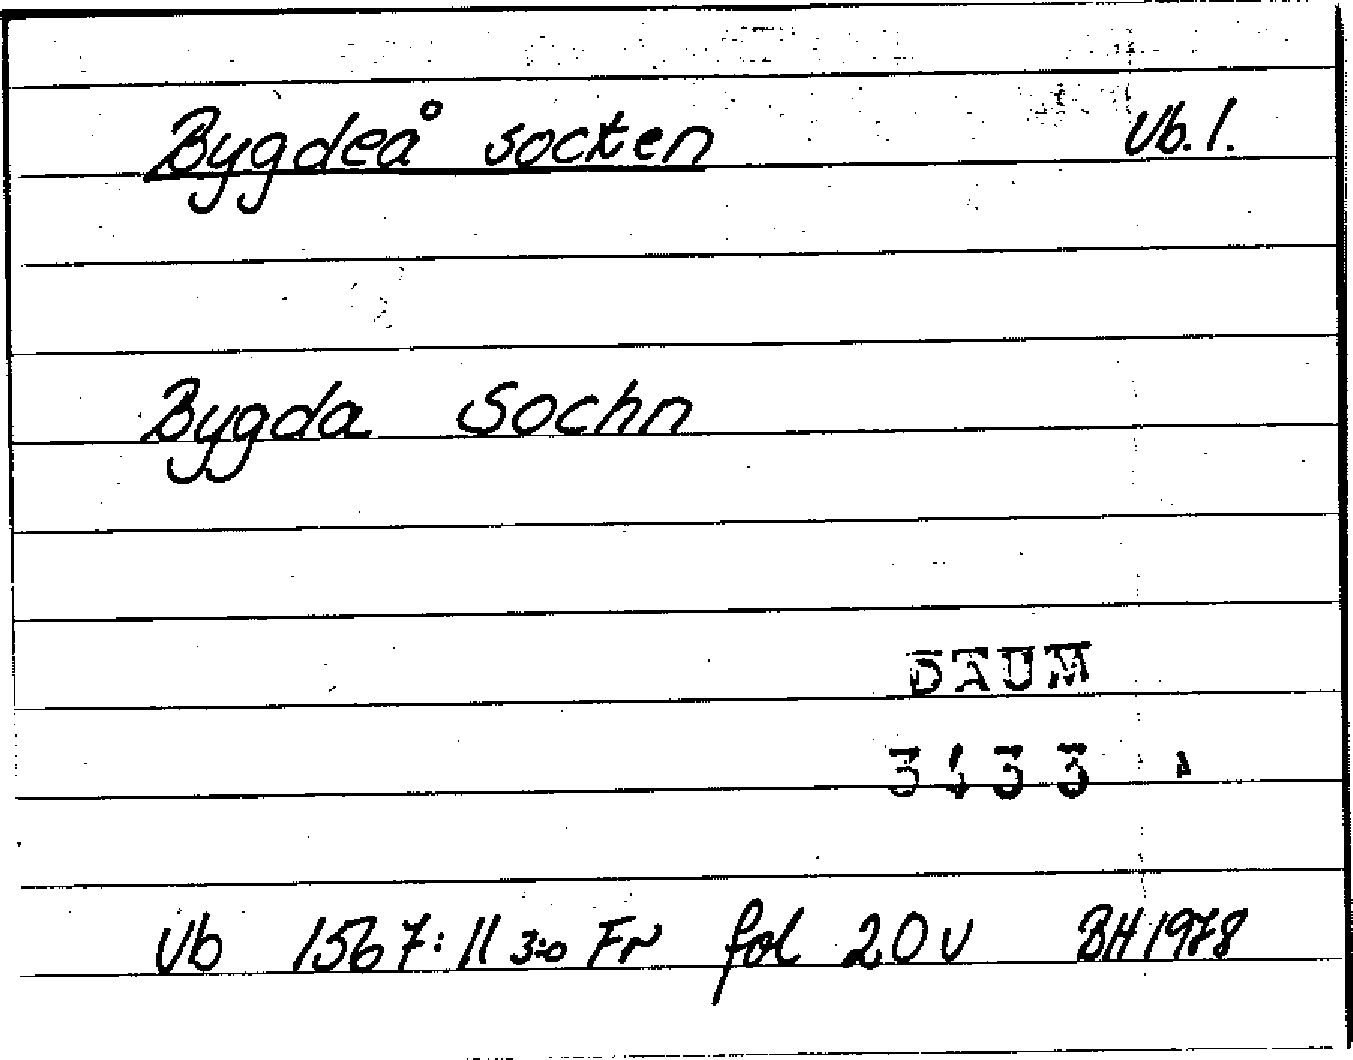 Bygdeå socken Vb. 1.
Bygda Sochn
DAUM
3433
Vb 1567: 11 3:o Fr fol 20 v BH 1978